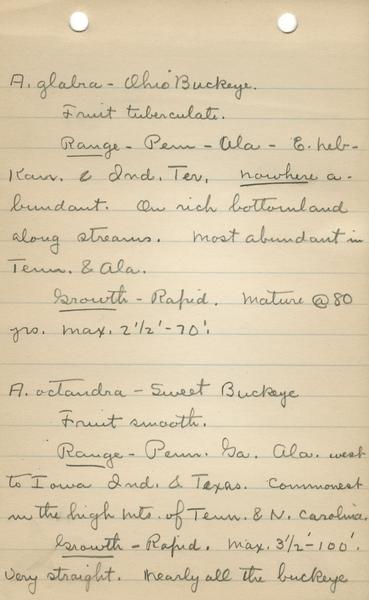 A. glabra - Ohio Buckeye.
Fruit tuberculate.
Range - Penn - Ala - E. Neb-
Kan. & Ind. Ter. nowhere a-
bundant. On rich bottomland
along streams. Most abundant in
Tenn. & Ala.
Growth - Rapid. Mature @ 80
yrs. Max. 2 1/2'-70'.
A. octandra - Sweet Buckeye
Fruit smooth.
Range - Penn. Ga. Ala. west
to Iowa Ind. & Texas. Commonest
in the high mts. of Tenn. & N. Carolina.
Growth - Rapid. Max. 3 1/2'-100'.
Very straight. Nearly all the buckeye